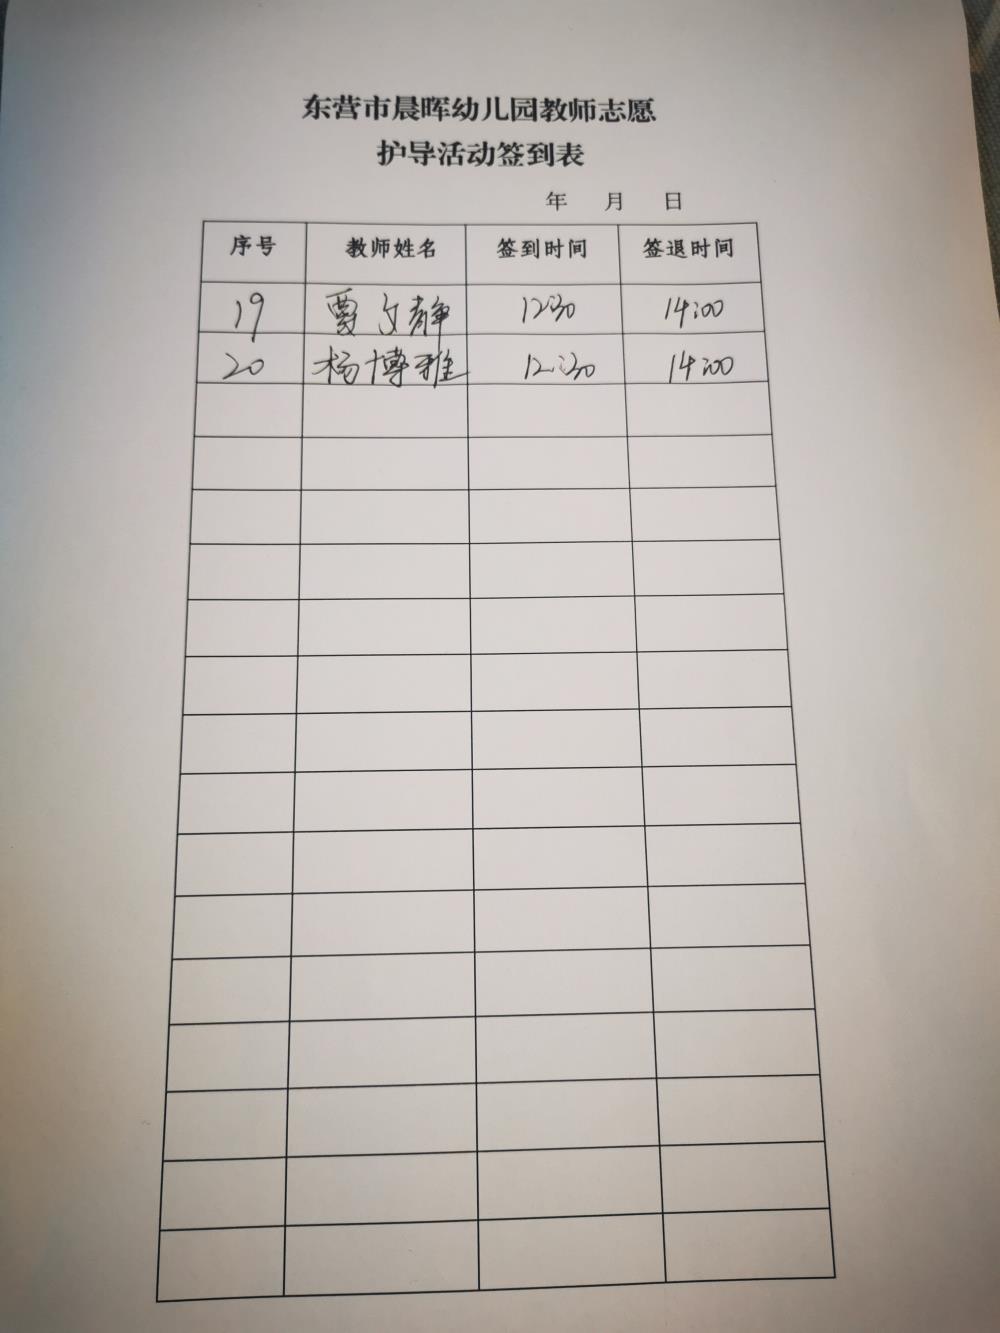 东营市晨晖幼儿园教师志愿
护导活动签到表
年 月 日
序号 教师姓名 签到时间 签退时间
19 贾文静 12:30 14:00
20 杨博雅 12:30 14:00